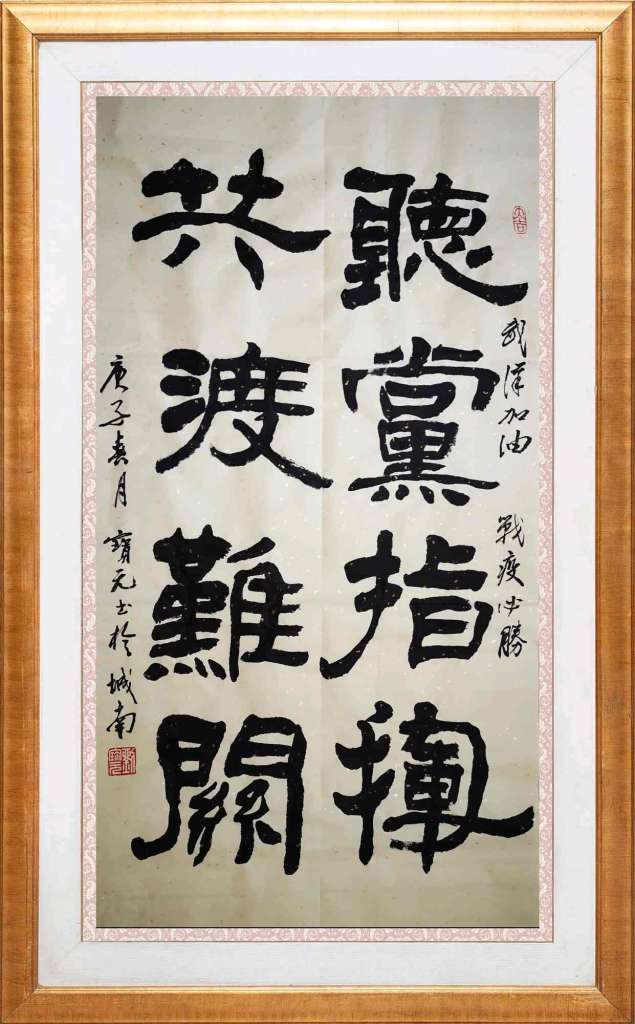 聽黨指揮
共渡難關
武漢加油 戰疫必勝
庚子春月 寶元書於城南